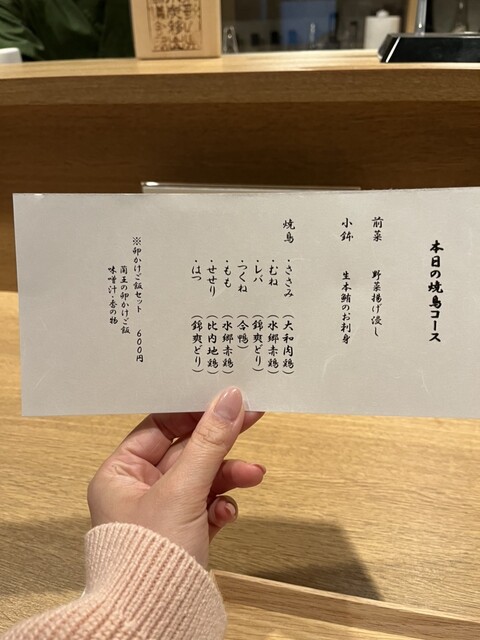 本日の焼鳥コース
前菜 野菜揚げ浸し
小鉢 生本鮪のお刺身
焼鳥 ・ささみ (大和肉鶏)
・むね (水郷赤鶏)
・レバ (錦爽どり)
・つくね (合鴨)
・もも (水郷赤鶏)
・せせり (比内地鶏)
・はつ (錦爽どり)
※卵かけご飯セット 600円
蘭王の卵かけご飯
味噌汁・香の物